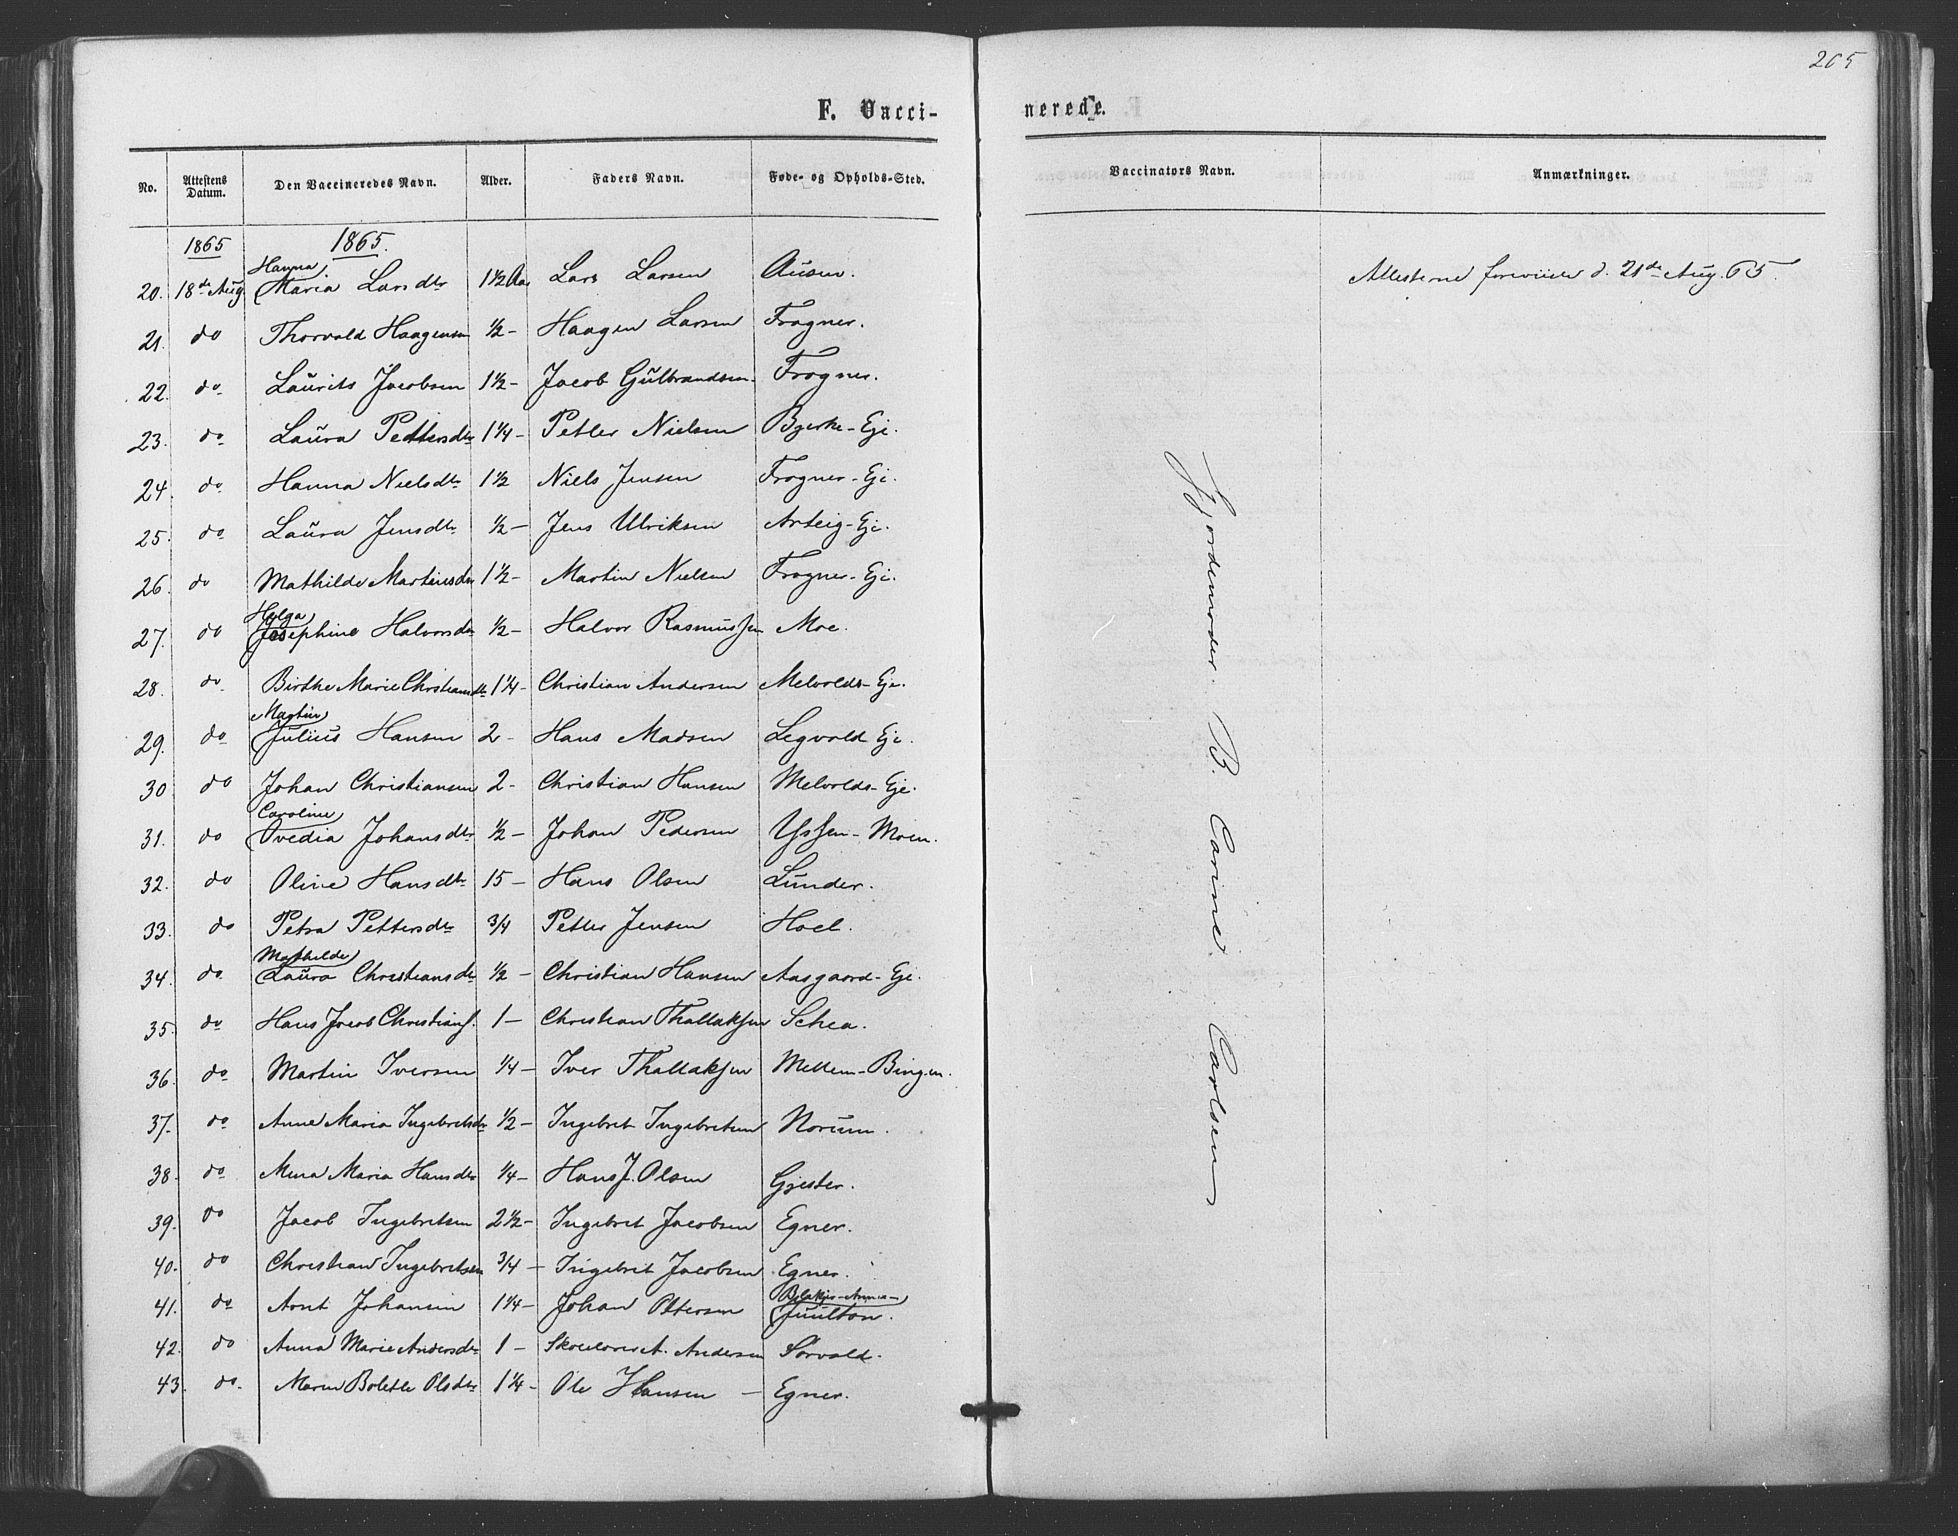 205
F. Vacci-
nerede.
No. Attestens Datum. Den Vaccineredes Navn. Alder. Faders Navn. Føde- og Opholds-Sted. Vaccinators Navn. Anmærkninger.
1865 1865.
Hanna
20. 18de Aug Maria Larsdtr 1½ Aar Lars Larsen Ausen. Attesterne foreviiste d. 21de Aug. 65.
21. do Thorvald Haagensen ½ - Haagen Larsen Frogner.
22. do Laurits Jacobsen 1½ - Jacob Gulbrandsen Frogner.
23. do Laura Pettersdtr 1¼ - Petter Nielsen Bjerke-Eje.
24. do Hanna Nielsdtr 1½ Niels Jensen Frogner-Eje.
25. do Laura Jensdtr ½ - Jens Ulriksen Arteig-Eje.
26. do Mathilde Martinusdtr 1½ - Martin Nielsen Frogner-Eje.
Helga
27. do Josephine Halvorsdtr ½ - Halvor Rasmussen Moe.
28. do Birthe Marie Christiansdtr 1¼ - Christian Andersen Melvolds-Eje.
Martin
29. do Julius Hansen 2 - Hans Madsen Legvold Eje.
30 do Johan Christiansen 2 - Christian Hansen Melvolds-Eje.
Caroline
31. do Ovedia Johansdtr ½ - Johan Pedersen Yssen-Moen.
32. do Oline Hansdtr 15 - Hans Olsen Lunder.
33. do Petra Pettersdtr ¾ Petter Jensen Hoel.
Mathilde
34. do Laura Christiansdtr ½ - Christian Hansen Aasgaard-Eje.
35. do Hans Jacob Christians. 1 - Christian Thallaksen Schea.
36. do Martin Iversen ¼ - Iver Thallaksen Mellem-Bingen.
37. do Anne Maria Ingebretsdtr ½ - Ingebret Ingebretsen Norum.
38. do Mina Maria Hansdtr ¼ - Hans J. Olsen Gjester.
39. do Jacob Ingebretsen 2½ - Ingebret Jacobsen Egner.
40. do Christian Ingebretsen ¾ - Ingebret Jacobsen Egner.
41. do Arnt Johansen 1¼ - Johan Ottersen
42. do Anna Marie Andersdtr 1 - Skolelærer A. Andersen Sørvald.
43. do. Maren Bolette Olsdtr 1¼ - Ole Hansen - Egner.
Gjordemoder B. Carine Carlsen